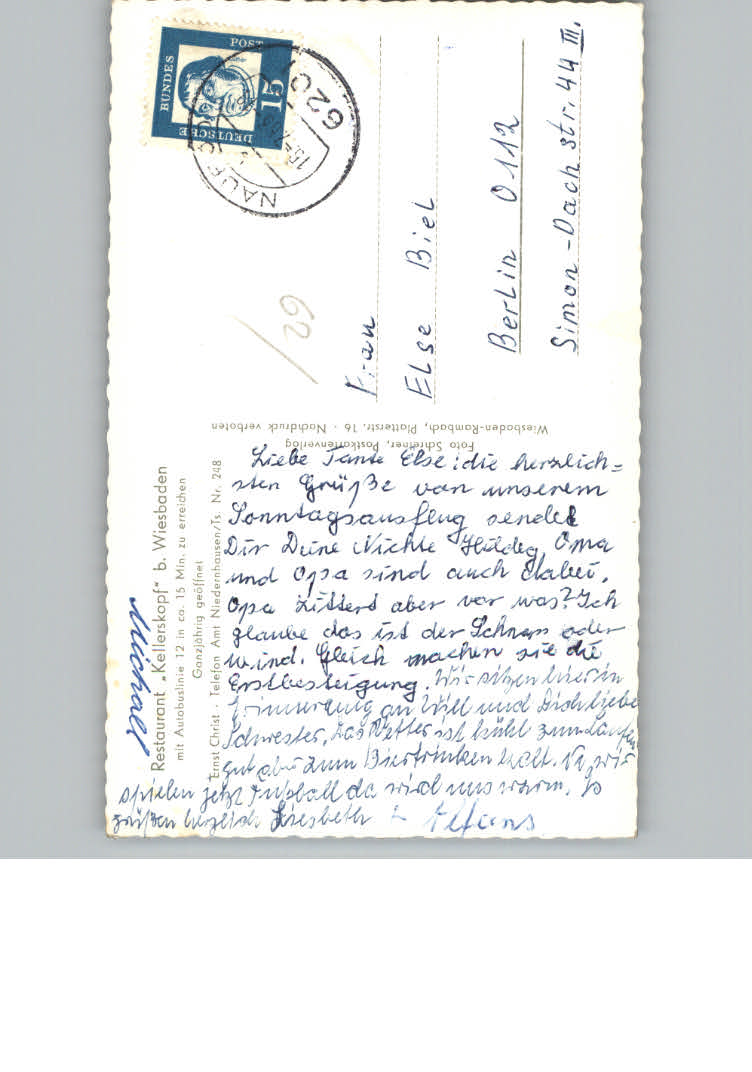 Restaurant „Kellerskopf" b. Wiesbaden
mit Autobuslinie 12 in ca. 15 Min. zu erreichen
Ganzjährig geöffnet
Ernst Christ · Telefon Amt Niedernhausen/Ts. Nr. 248
Michael
Liebe Tante Else! die herzlich=
sten Grüße von unserem
Sonntagsausflug sendet
Dir Deine Nichte Hildeg. Oma
und Opa sind auch dabei.
Opa zittert aber vor was? Ich
glaube das ist der Schnaps oder
Wind. Gleich machen sie die
Erstbesteigung. Wir sitzen hier in
Erinnerung an Willi und Dich liebe
Schwester, das Wetter ist kühl zum Laufen
gut aber zum Biertrinken kalt. Na, wir
spielen jetzt Fußball da wird uns warm. So
grüßen herzlich Liesbeth + Alfons
Foto Schreiner, Postkartenverlag
Wiesbaden-Rambach, Platterstr. 16 · Nachdruck verboten
DEUTSCHE
BUNDES
POST
15
6201
NAUROD
62
Frau
Else Biel
Berlin O112
Simon-Dachstr. 44 III.